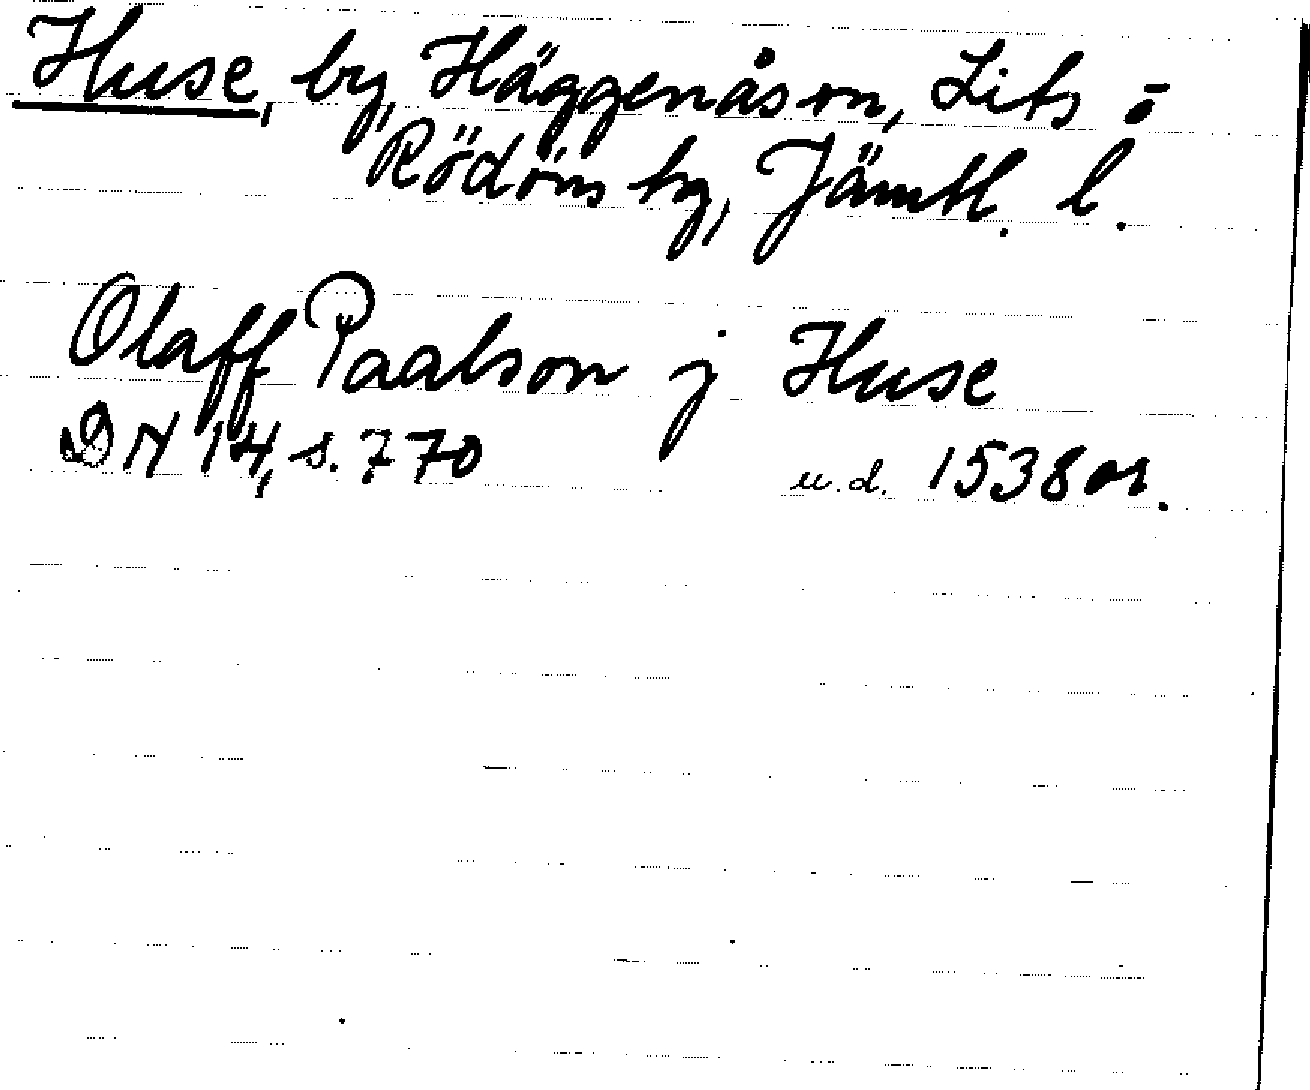 Huse, by, Häggenås sn, Lits o
Rödöns tg, Jämtl. l.
Olaff Paalson j Huse
DN 14, s. 770 u.d. 1538 or.